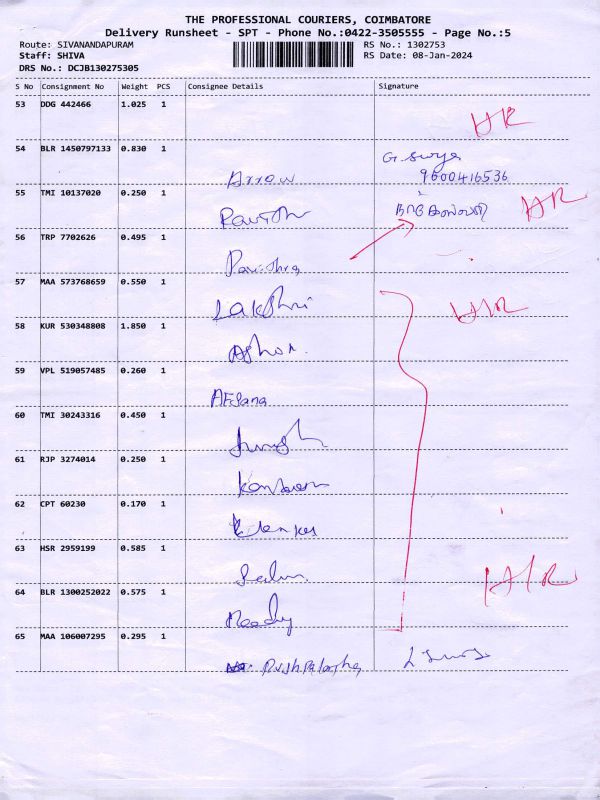 THE PROFESSIONAL COURIERS, COIMBATORE
Delivery Runsheet - SPT - Phone No.:0422-3505555 - Page No.:5
Route: SIVANANDAPURAM RS No.: 1302753
Staff: SHIVA RS Date: 08-Jan-2024
DRS No.: DCJB130275305
S No Consignment No Weight PCS Consignee Details Signature
53 DDG 442466 1.025 1
54 BLR 1450797133 0.830 1
G. Surya
Arrow 9600416536
55 TMI 10137020 0.250 1
56 TRP 7702626 0.495 1
Pavithra
57 MAA 573768659 0.550 1
Lakshmi
58 KUR 530348808 1.850 1
Ashok
59 VPL 519057485 0.260 1
AFsana
60 TMI 30243316 0.450 1
61 RJP 3274014 0.250 1
62 CPT 60230 0.170 1
63 HSR 2959199 0.585 1
64 BLR 1300252022 0.575 1
65 MAA 106007295 0.295 1